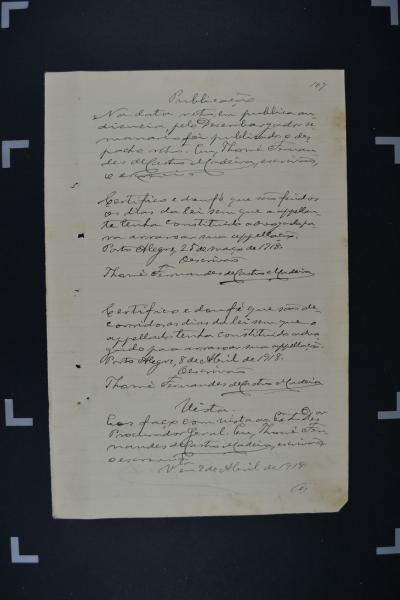 107
Publicação
Na data retro em publica au
diencia, pelo Desembargador se
manario foi publicado o des
pacho retro. Eu, Thomé Fernan
des de Castro Madeira, escrivão,
o escrevi.
Certifico e dou fé que são findos
os dias da lei sem que a appellan
te tenha constituido advogado pa
ra arrazoar sua appellação.
Porto Alegre, 25 de março de 1918.
O escrivão
Thomé Fernandes de Castro Madeira
Certifico e dou fé que são de
corridos os dias da lei sem que o
appellado tenha constituido advo
gado para arrazoar sua appellação.
Porto Alegre, 8 de Abril de 1918.
O escrivão
Thomé Fernandes de Castro Madeira
Vista
Eos faço com vista ao Dor
Procurador Geral. Eu, Thomé Fer
nandes de Castro Madeira, escrivão
o escrevi
Vta em 2 de Abril de 1918